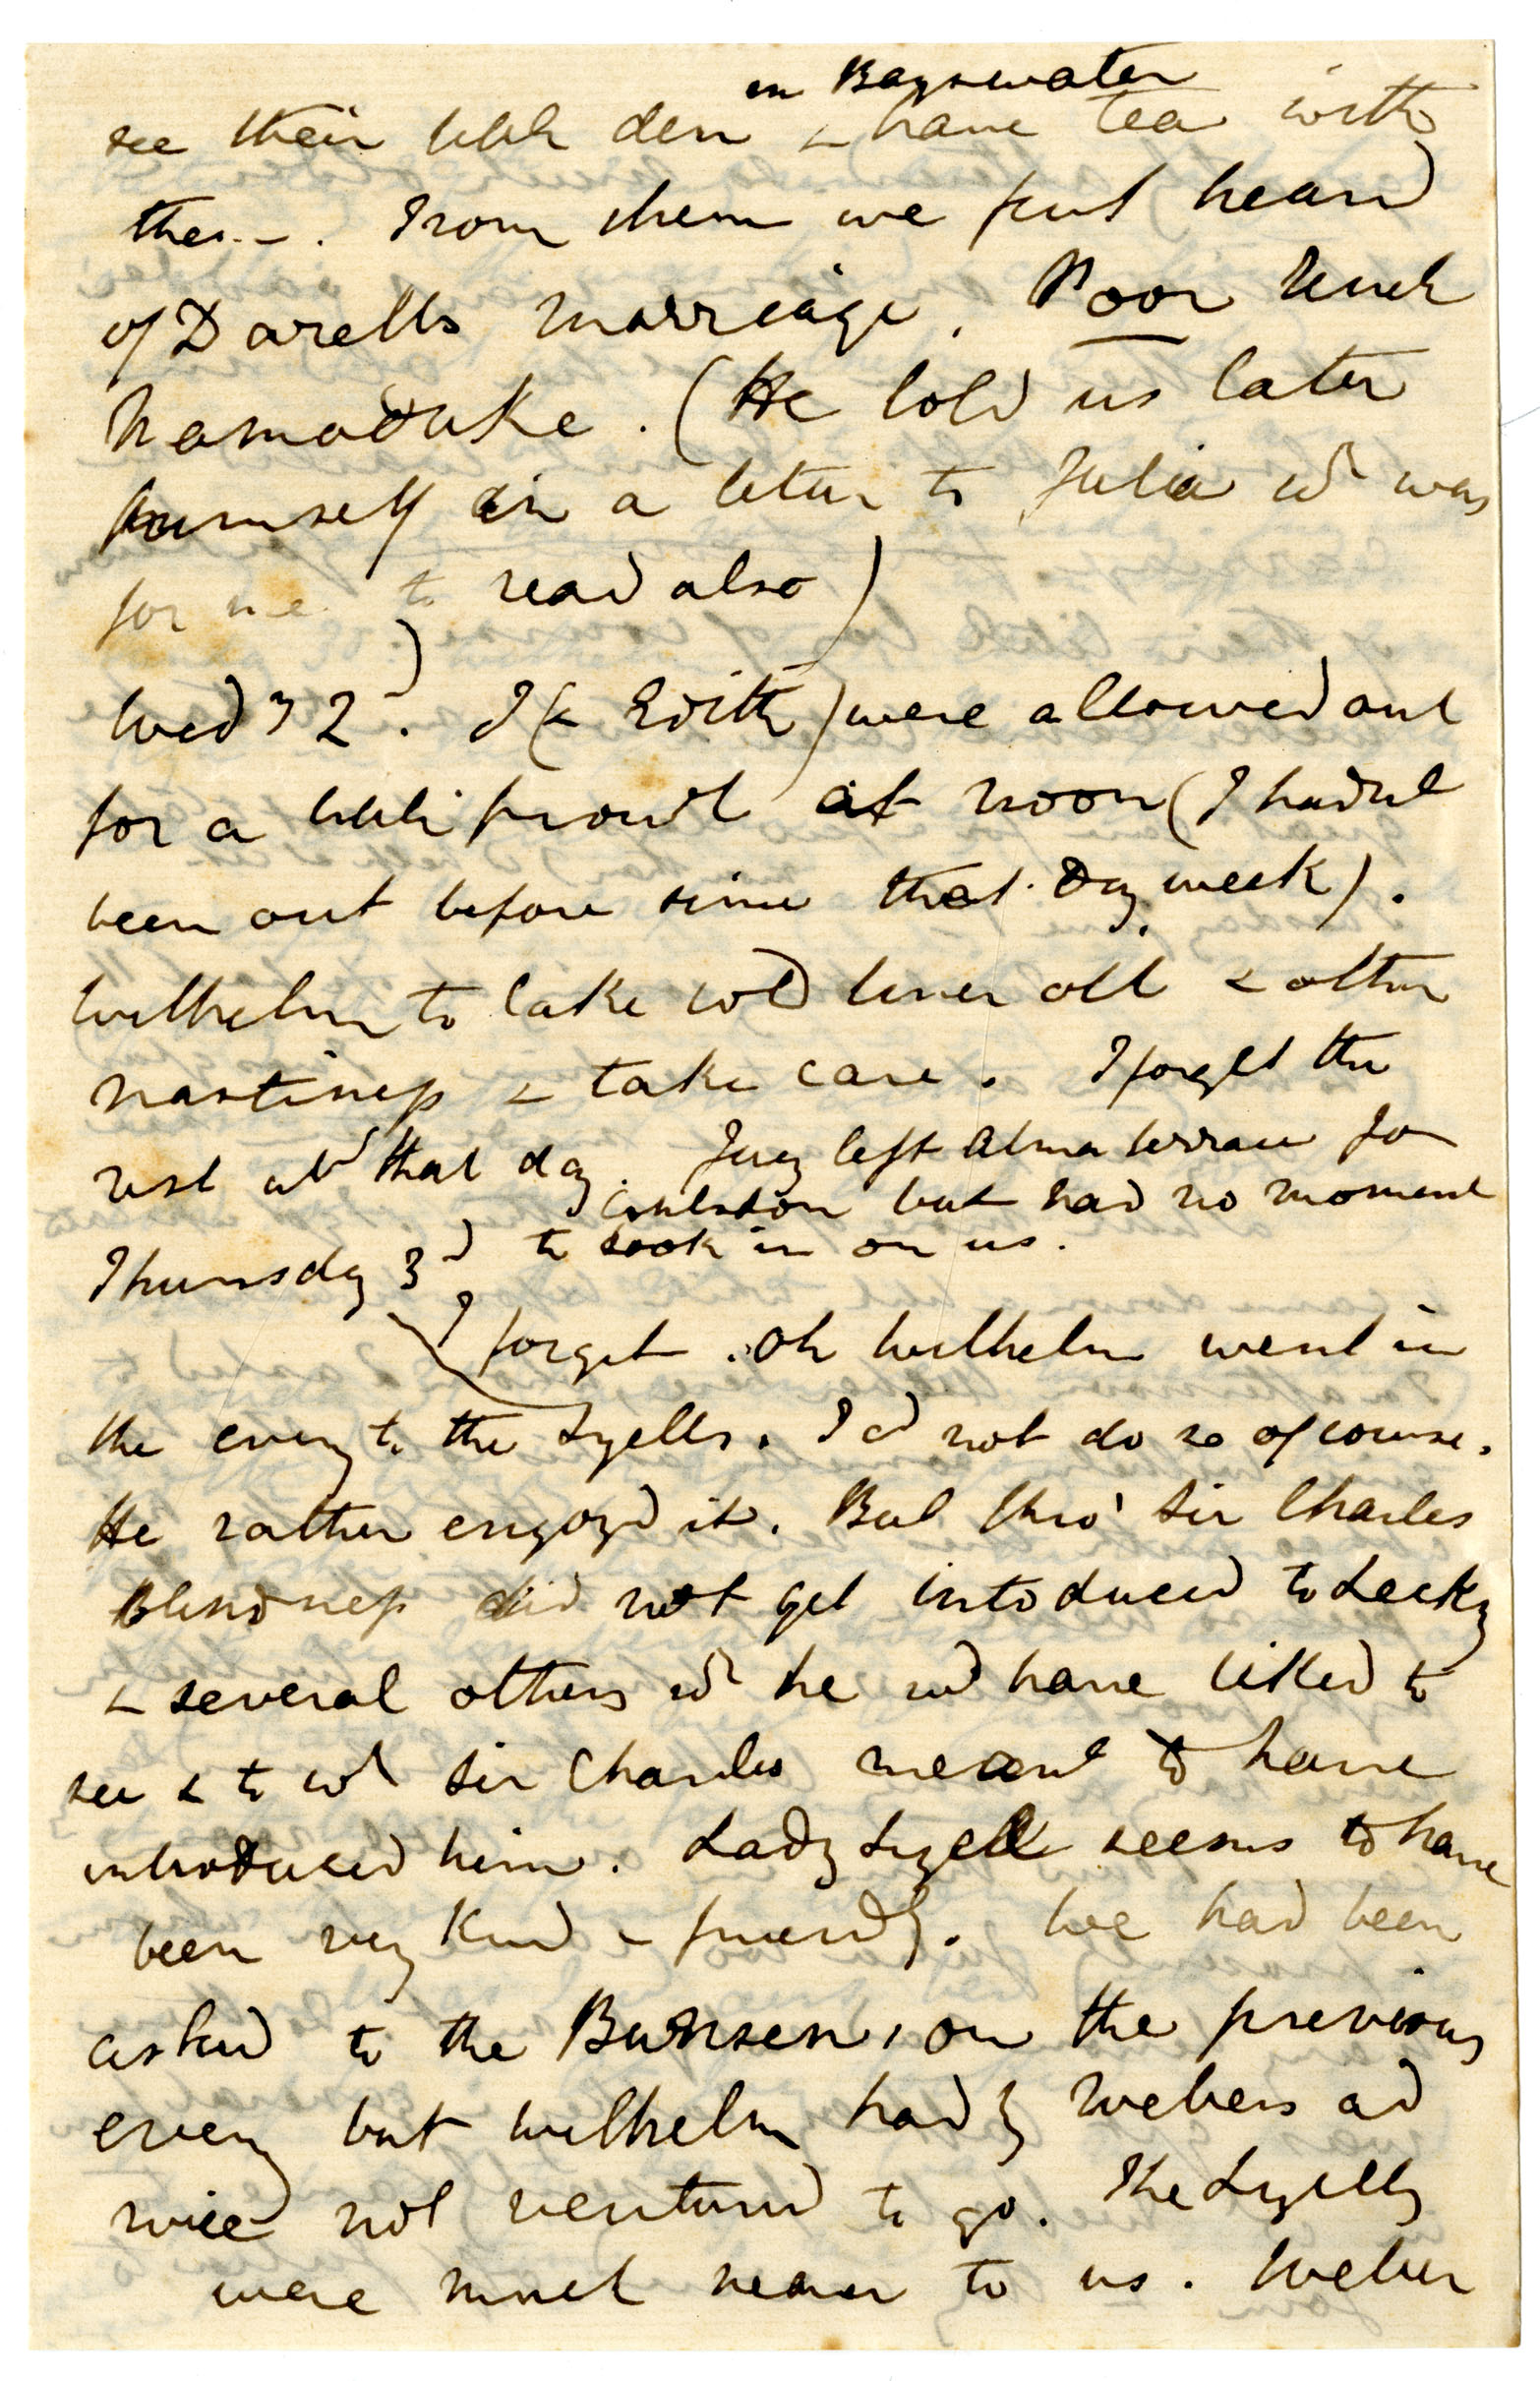 in Bayswater
see their little den & have tea with
them. From them we first heard
of Darells marriage. Poor Uncle
Marmaduke. (He told us later
himself in a letter to Julia wh was
for me to read also)
Wedy 2d. I (& Edith) were allowed out
for a little prowl at noon (I hadnt
been out before since that day week).
Wilhelm to take cod liver oil & other
nastiness & take care. I forget the
rest abt that day. Juey left Alma terrace for
Coulsdon but had no moment
to look in on us.
Thursday 3d
I forget. Oh Wilhelm went in
the eveng to the Lyells. I cd not do so of course.
He rather enjoyd it. But thro' Sir Charles
Blindness did not get introduced to Lecky
& several others wh he wd have liked to
see & to wh Sir Charles meant to have
introduced him. Lady Lyell seems to have
been very kind & friendly. We had been
asked to the Bunsens on the previous
eveng but Wilhelm had by Webers ad
vice not ventured to go. The Lyells
were much nearer to us. Weber